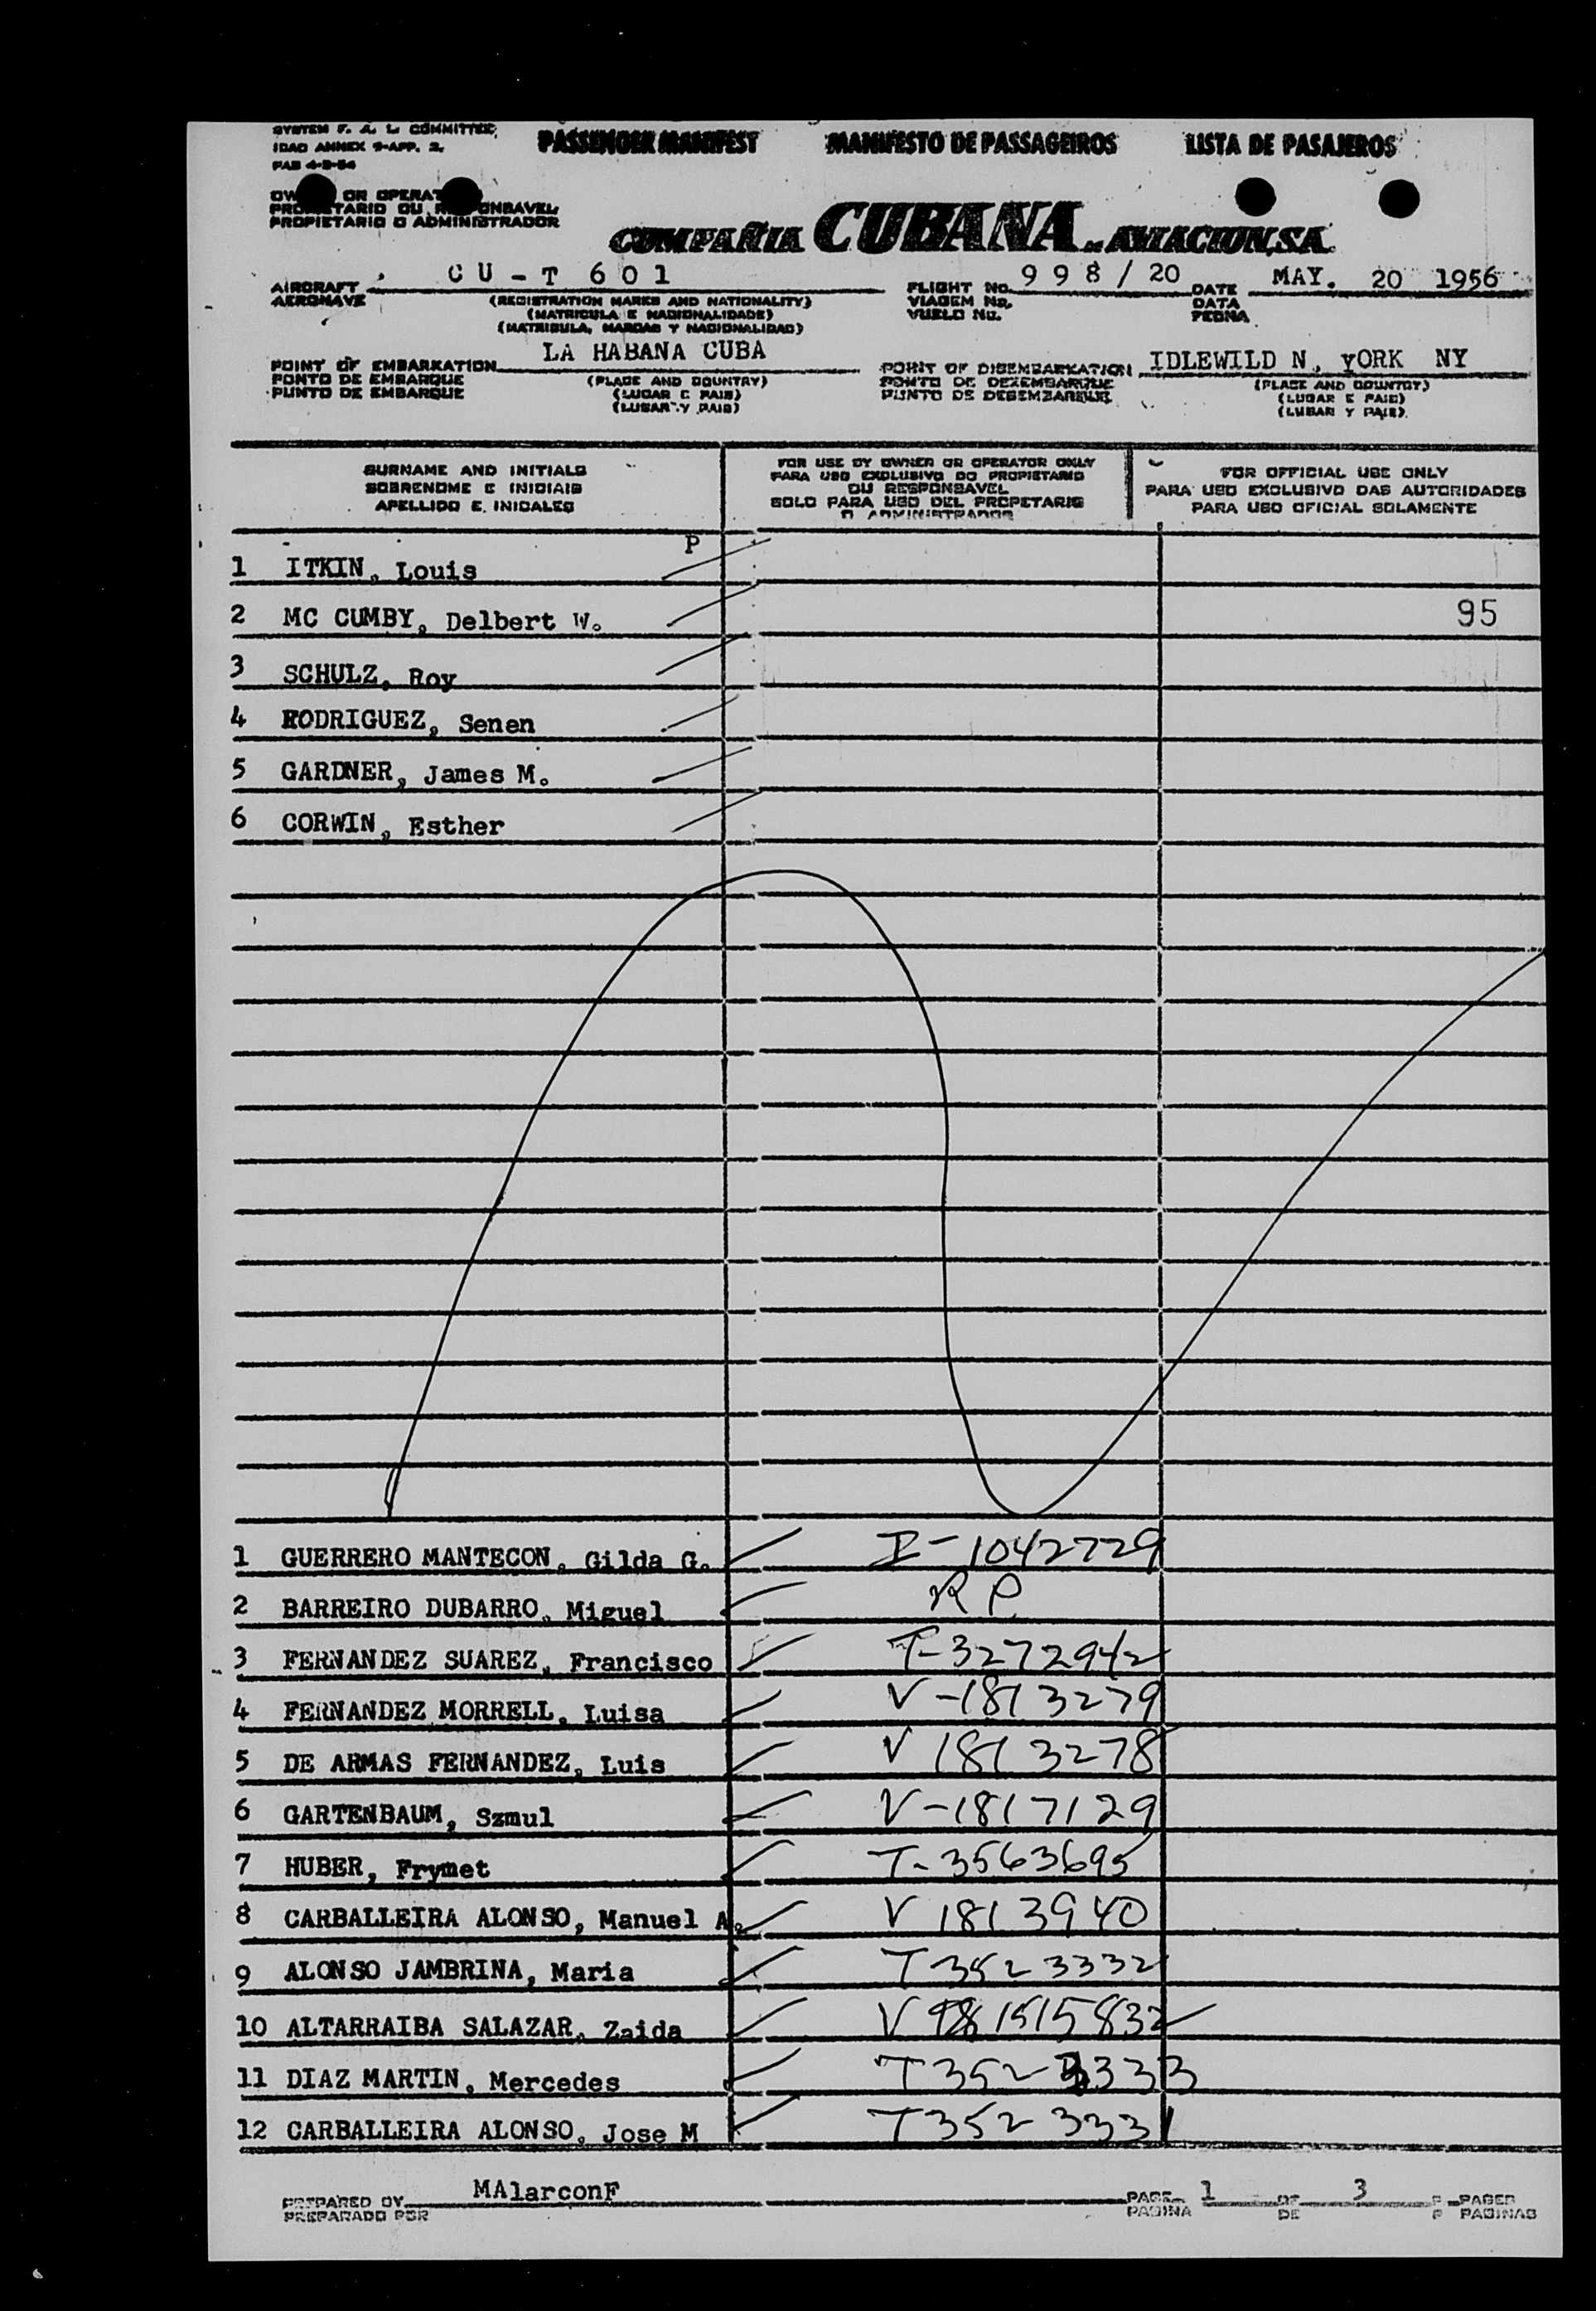 SYSTEM F. A. L. COMMITTEE,
ICAO ANNEX 9-APP. 3.
PASSENGER MANIFEST MANIFESTO DE PASSAGEIROS LISTA DE PASAJEROS
OR OPERAT
PROPIETARIO O ADMINISTRADOR
COMPAÑIA CUBANA DE AVIACION, S.A.
AIRCRAFT CU-T 601 FLIGHT NO. 998/20 DATE MAY. 20 1956
AERONAVE (REGISTRATION MARKS AND NATIONALITY) VIAGEM No. DATA
(MATRICULA E NACIONALIDADE) VUELO No. FECHA
(MATRICULA, MARCAS Y NACIONALIDAD)
POINT OF EMBARKATION LA HABANA CUBA POINT OF DISEMBARKATION IDLEWILD N, YORK NY
PONTO DE EMBARQUE (PLACE AND COUNTRY) PONTO DE DEZEMBARQUE (PLACE AND COUNTRY)
PUNTO DE EMBARQUE (LUGAR E PAIS) PUNTO DE DESEMBARQUE (LUGAR E PAIS)
(LUGAR Y PAIS) (LUGAR Y PAIS)
SURNAME AND INITIALS FOR USE BY OWNER OR OPERATOR ONLY FOR OFFICIAL USE ONLY
SOBRENOME E INICIAIS PARA USO EXCLUSIVO DO PROPIETARIO PARA USO EXCLUSIVO DAS AUTORIDADES
APELLIDO E. INICALES OU RESPONSAVEL PARA USO OFICIAL SOLAMENTE
SOLO PARA USO DEL PROPETARIO
O ADMINISTRADOR
P
1 ITKIN, Louis
2 MC CUMBY, Delbert W. 95
3 SCHULZ, Roy
4 RODRIGUEZ, Senen
5 GARDNER, James M.
6 CORWIN, Esther
1 GUERRERO MANTECON, Gilda G. I-1042729
2 BARREIRO DUBARRO, Miguel RP
3 FERNANDEZ SUAREZ, Francisco T-3272942
4 FERNANDEZ MORRELL, Luisa V-1813279
5 DE ARMAS FERNANDEZ, Luis V 1813278
6 GARTENBAUM, Szmul V-1817129
7 HUBER, Frymet T-3563695
8 CARBALLEIRA ALONSO, Manuel A. V 1813940
9 ALONSO JAMBRINA, Maria T 3523332
10 ALTARRAIBA SALAZAR, Zaida
11 DIAZ MARTIN, Mercedes T 3523333
12 CARBALLEIRA ALONSO, Jose M T 3523331
PREPARED BY MAlarconF PAGE 1 OF 3 PAGES
PREPARADO POR PAGINA DE PAGINAS